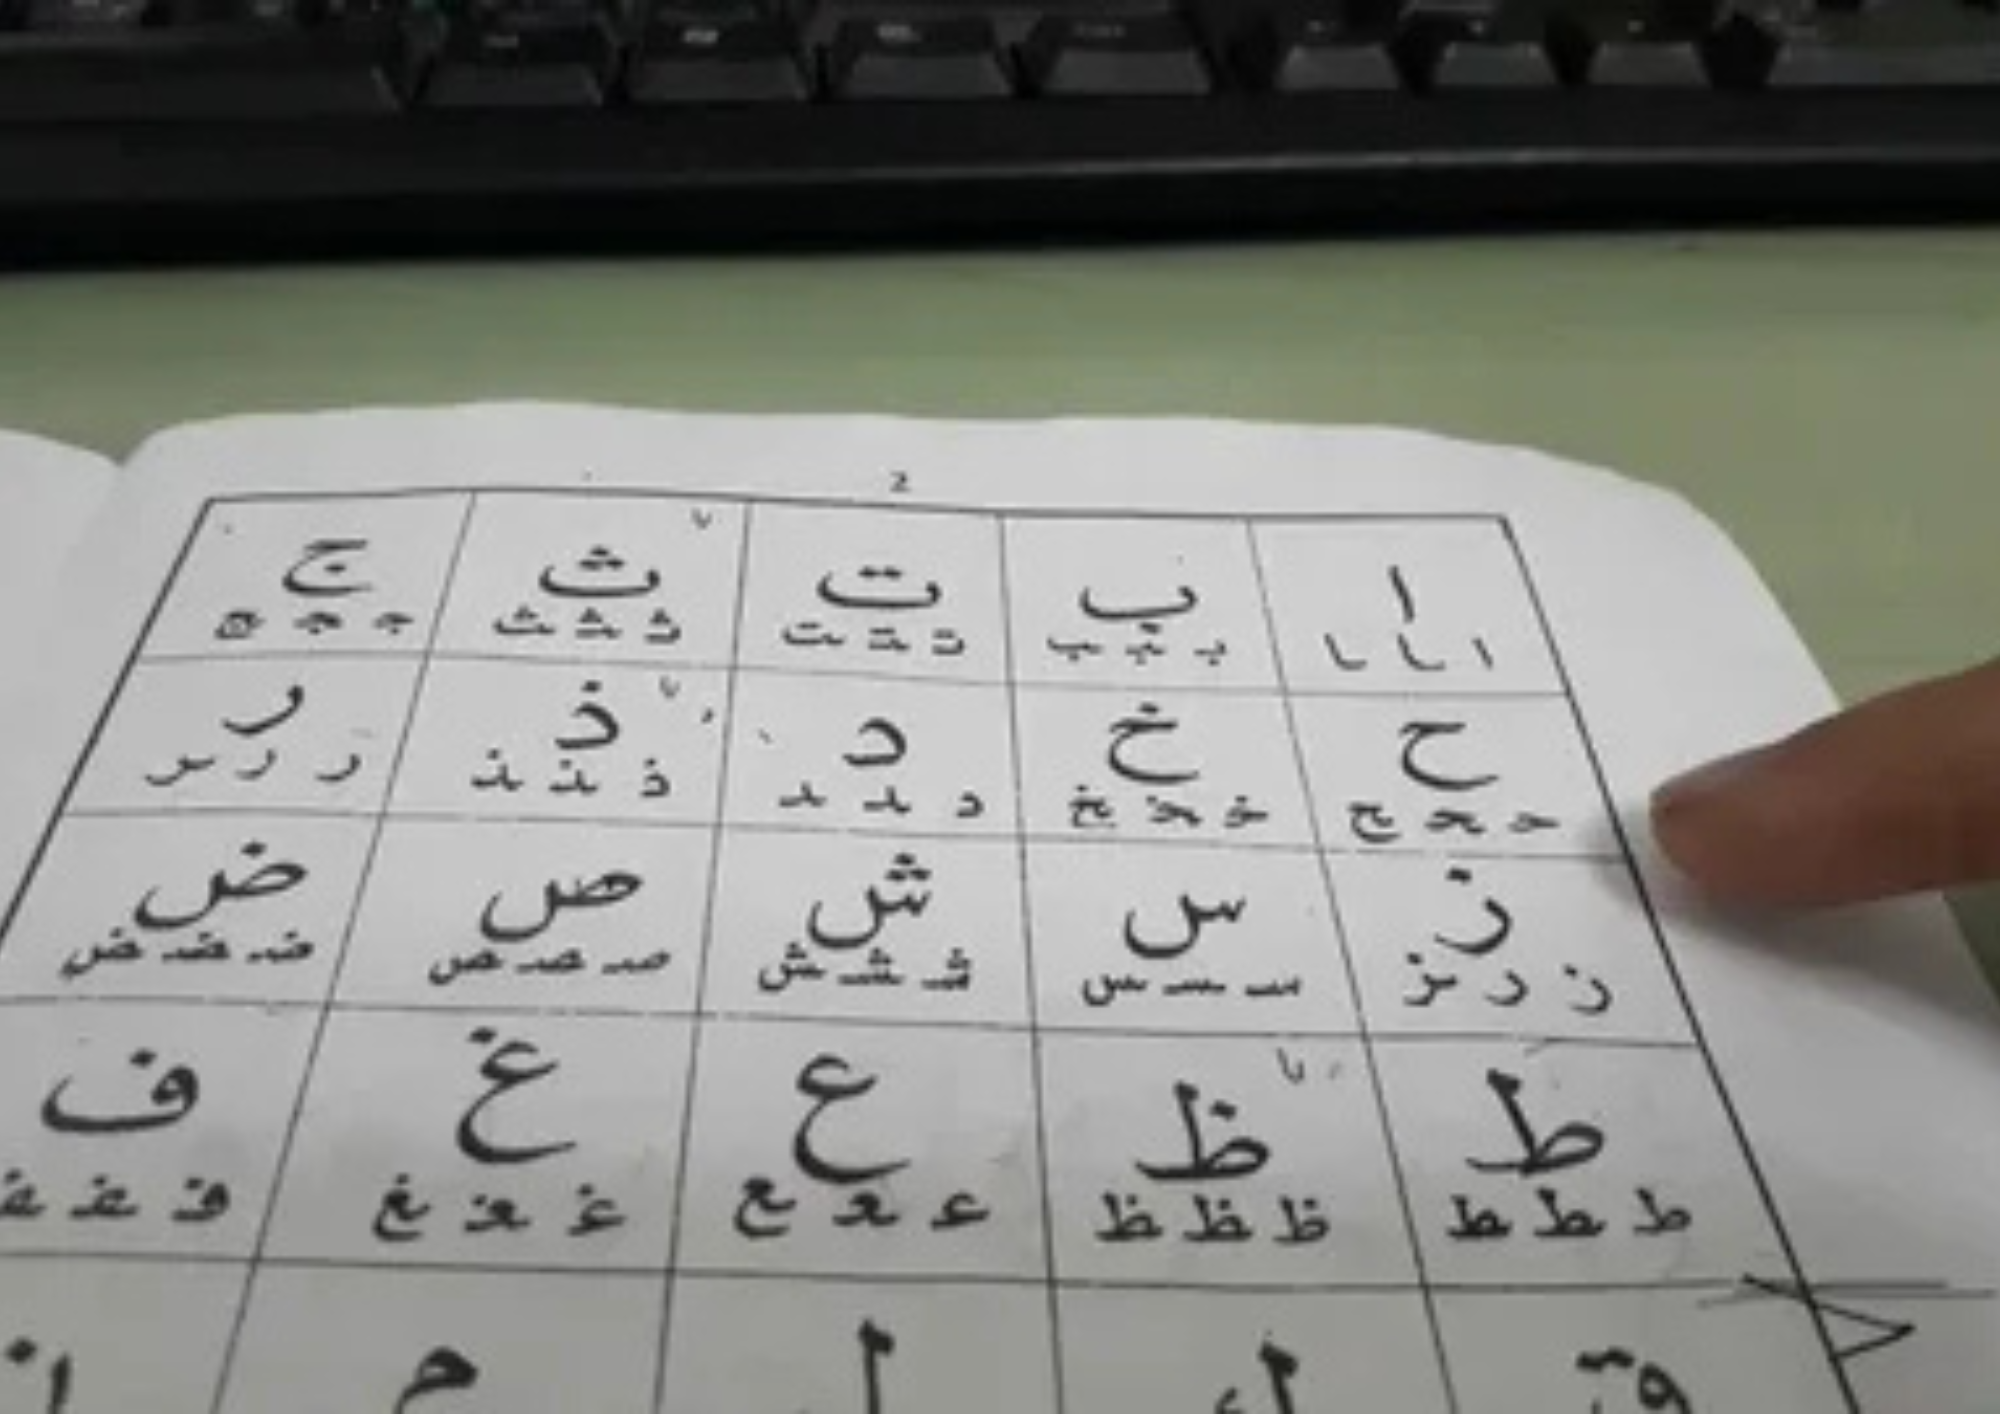 2
ا ب ت ث ج
ا ـا ـا بـ ـبـ ـب تـ ـتـ ـت ثـ ـثـ ـث جـ ـجـ ـج
ح خ د ذ ر
حـ ـحـ ـح خـ ـخـ ـخ د ـد ـد ذ ـذ ـذ ر ر ـر
ز س ش ص ض
ز ز ـز سـ ـسـ ـس شـ ـشـ ـش صـ ـصـ ـص ضـ ـضـ ـض
ط ظ ع غ ف
ط ـطـ ـط ظ ـظـ ـظ عـ ـعـ ـع غـ ـغـ ـغ فـ ـفـ ـف
ق ك ل م